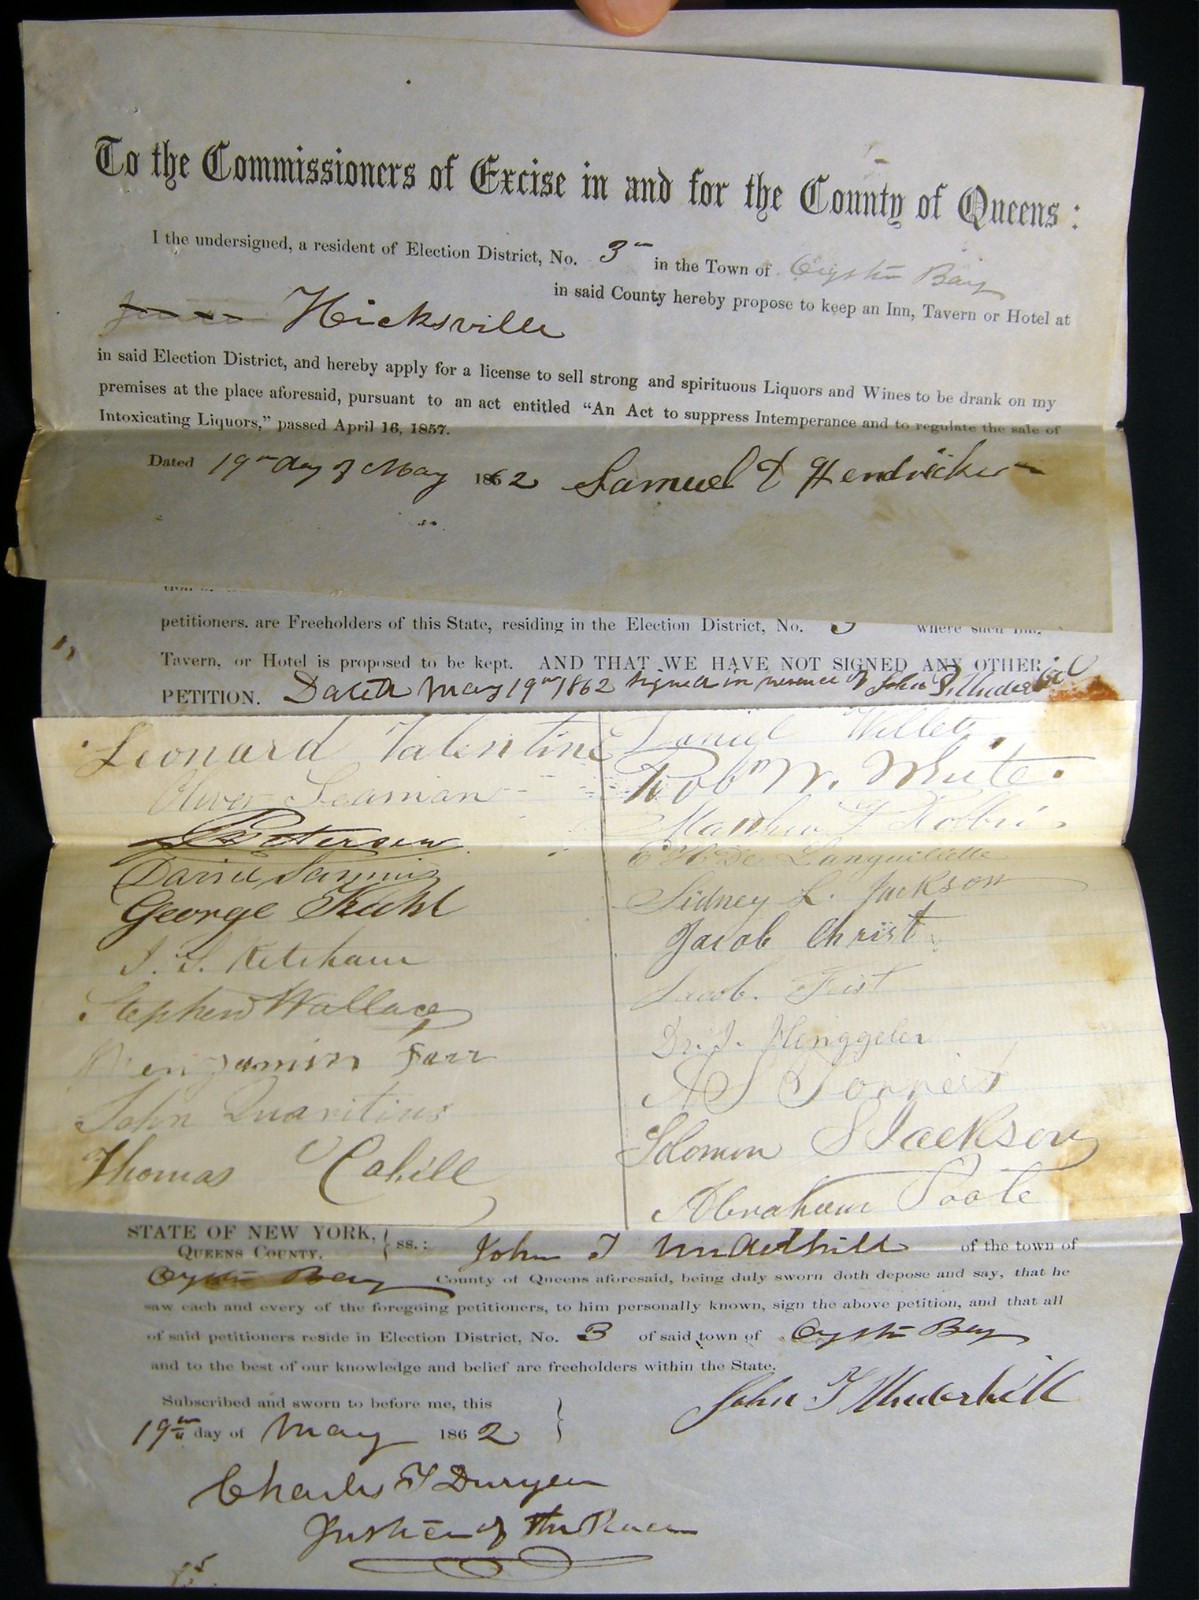 To the Commissioners of Excise in and for the County of Queens:
I the undersigned, a resident of Election District, No. 3 in the Town of Oyster Bay
in said County hereby propose to keep an Inn, Tavern or Hotel at
Hicksville
in said Election District, and hereby apply for a license to sell strong and spirituous Liquors and Wines to be drank on my
premises at the place aforesaid, pursuant to an act entitled "An Act to suppress Intemperance and to regulate the sale of
Intoxicating Liquors," passed April 16, 1857.
Dated 19th day of May 1862 Samuel
petitioners. are Freeholders of this State, residing in the Election District, No. 3 where such Inn,
Tavern, or Hotel is proposed to be kept. AND THAT WE HAVE NOT SIGNED ANY OTHER
PETITION. Dated May 19th 1862 signed in presence of John T. Underhill
Leonard Valentine
Oliver Seaman
Peterson
Daniel Sammis
George Kuhl
J. S. Ketcham
Stephen Wallace
Benjamin Farr
John Quaritius
Thomas Cahill
Daniel Willets
Rob W. White
Matthew F Robbins
Sidney L. Jackson
Jacob Christ
Jacob Fist
Dr. J. Henggeler
Solomon S Jackson
Abraham Poole
STATE OF NEW YORK,
QUEENS COUNTY. ss.: John T Underhill of the town of
Oyster Bay County of Queens aforesaid, being duly sworn doth depose and say, that he
saw each and every of the foregoing petitioners, to him personally known, sign the above petition, and that all
of said petitioners reside in Election District, No. 3 of said town of Oyster Bay
and to the best of our knowledge and belief are freeholders within the State.
John T Underhill
Subscribed and sworn to before me, this
19th day of May 1862
Charles T Duryea
Justice of the Peace